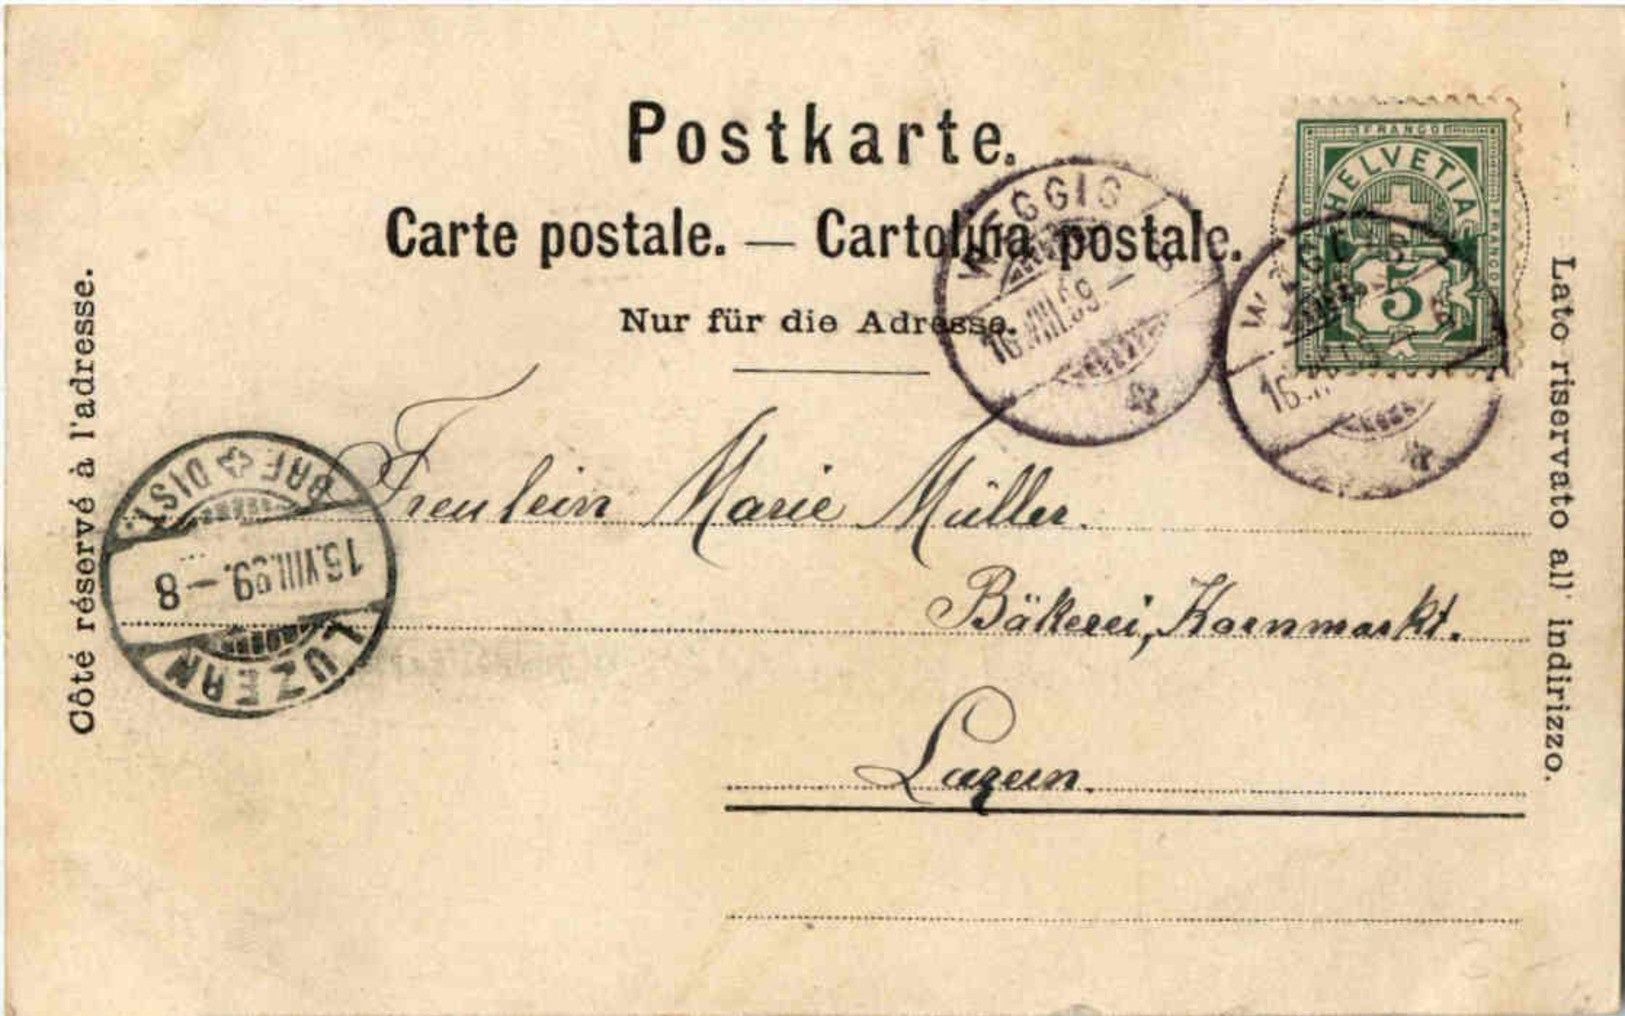 Postkarte.
Carte postale. — Cartolina postale.
Nur für die Adresse.
Côté réservé à l'adresse.
Lato riservato all' indirizzo.
FRANCO
HELVETIA
FRANCO
5
WEGGIS
16.VIII.99.
WEGGIS
16.
BRF DIST.
16.VIII.99.–8
LUZERN
Freulein Marie Müller.
Bäkerei, Kornmarkt.
Luzern.